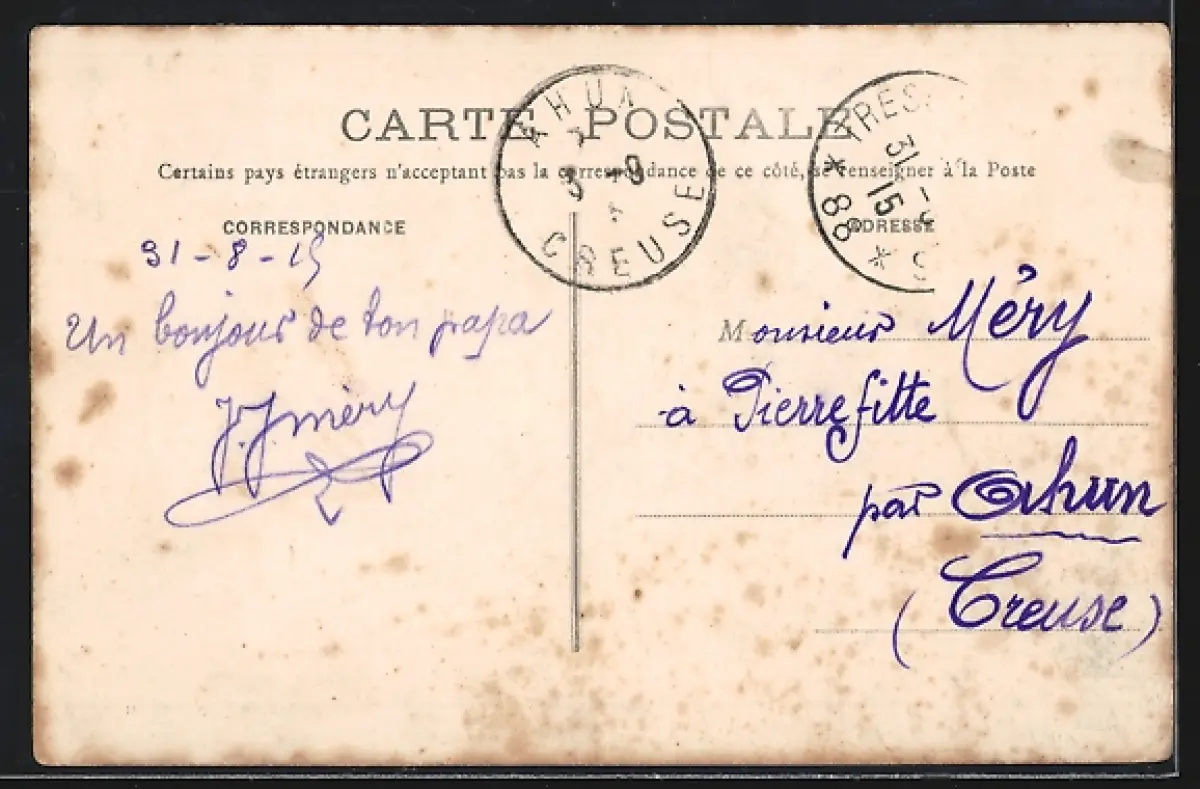 CARTE POSTALE
Certains pays étrangers n'acceptant pas la correspondance de ce côté, se renseigner à la Poste
CORRESPONDANCE
ADRESSE
AHUN
3 -9
CREUSE
31
15
* 88 *
31-8-15
Un bonjour de ton papa
J. J. Méry
Monsieur Méry
à Pierrefitte
par Ahun
(Creuse)